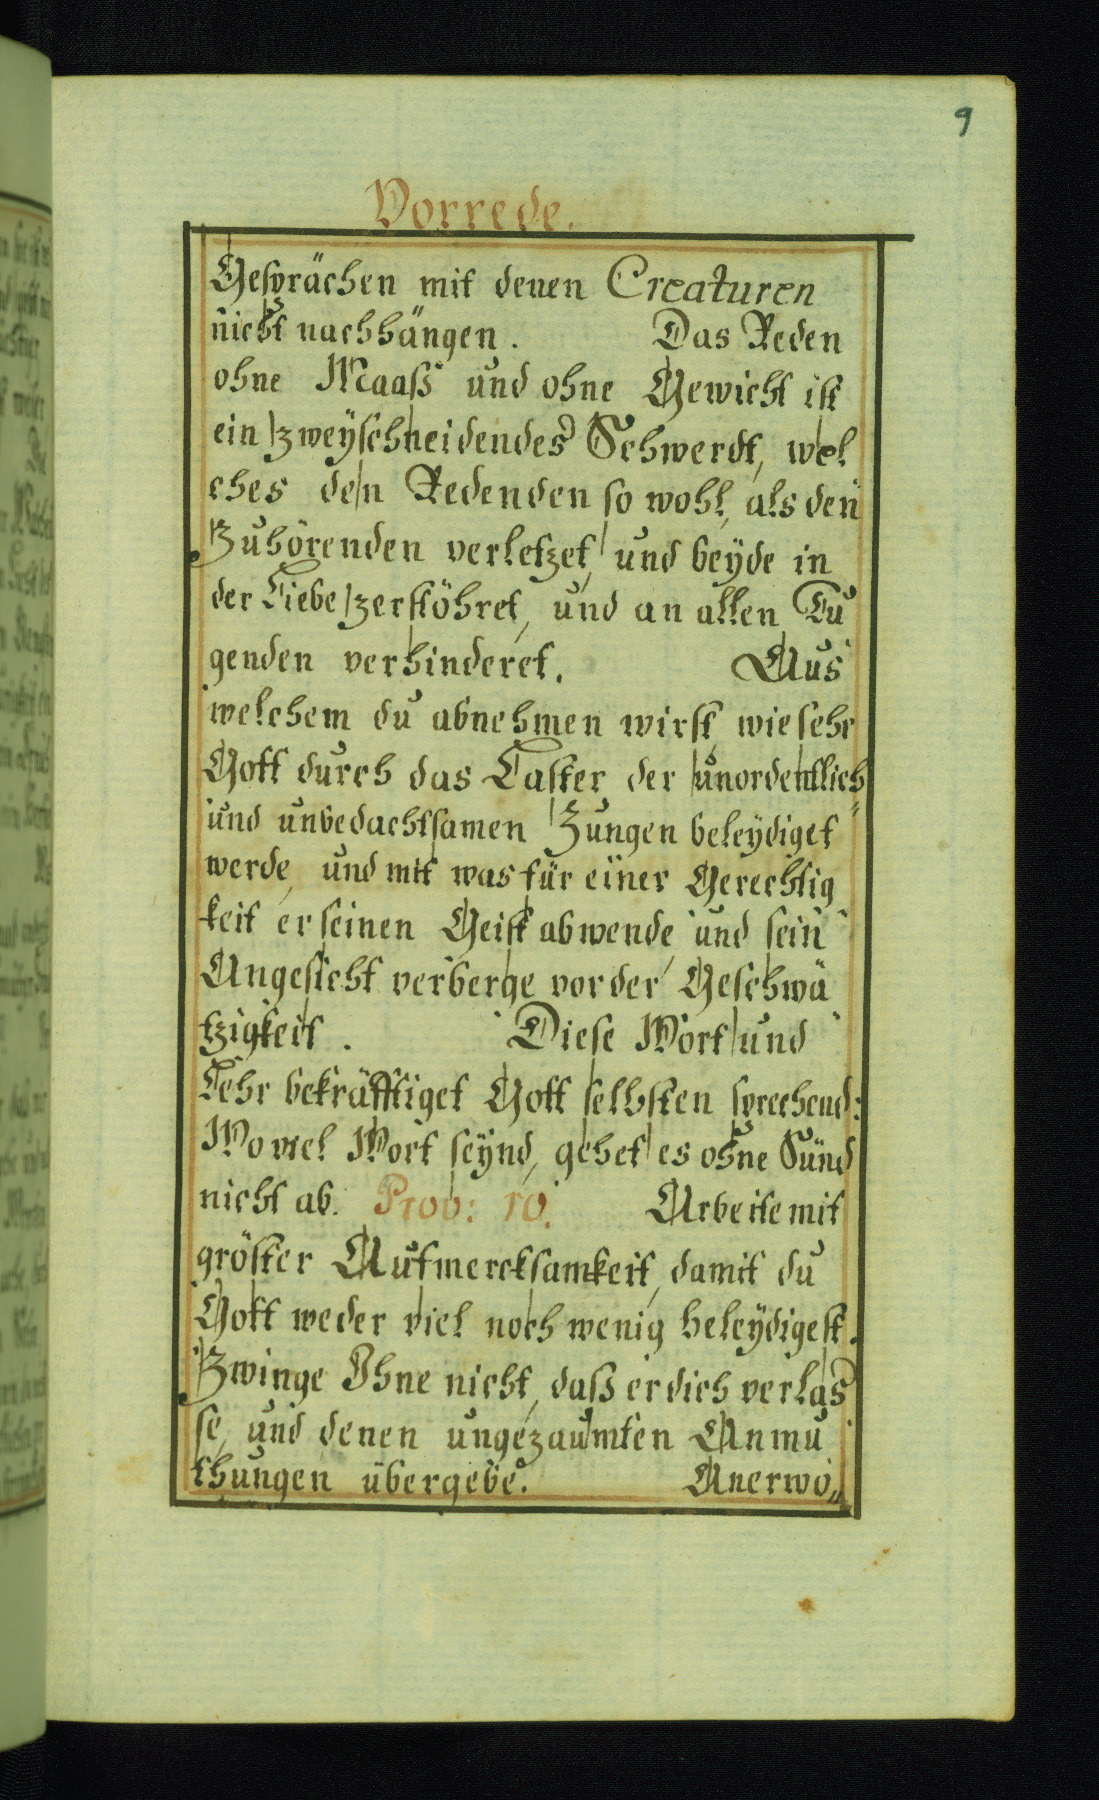 9
Vorrede.
Gesprächen mit denen Creaturen
nicht nachhängen. Das Reden
ohne Maaß und ohne Gewicht ist
ein zweyschneidendes Schwerdt, wel
ches den Redenden so wohl, als den
Zuhörenden verletzet, und beyde in
der Liebe zerstöhret, und an allen Tu
genden verhinderet. Aus
welchem du abnehmen wirst, wie sehr
Gott durch das Laster der unordentlich
und unbedachtsamen Zungen beleydiget
werde, und mit was für einer Gerechtig
keit er seinen Geist abwende, und sein
Angesicht verberge vor der Geschwä
tzigkeit. Diese Wort und
Lehr bekräfftiget Gott selbsten sprechend:
Wo viel Wort seynd, gehet es ohne Sünd
nicht ab. Prov: 10. Arbeite mit
gröster Aufmercksamkeit, damit du
Gott weder viel noch wenig beleydigest.
Zwinge Ihne nicht, daß er dich verlas
se, und denen ungezaumten Anmu
thungen übergebe. Anerwö„